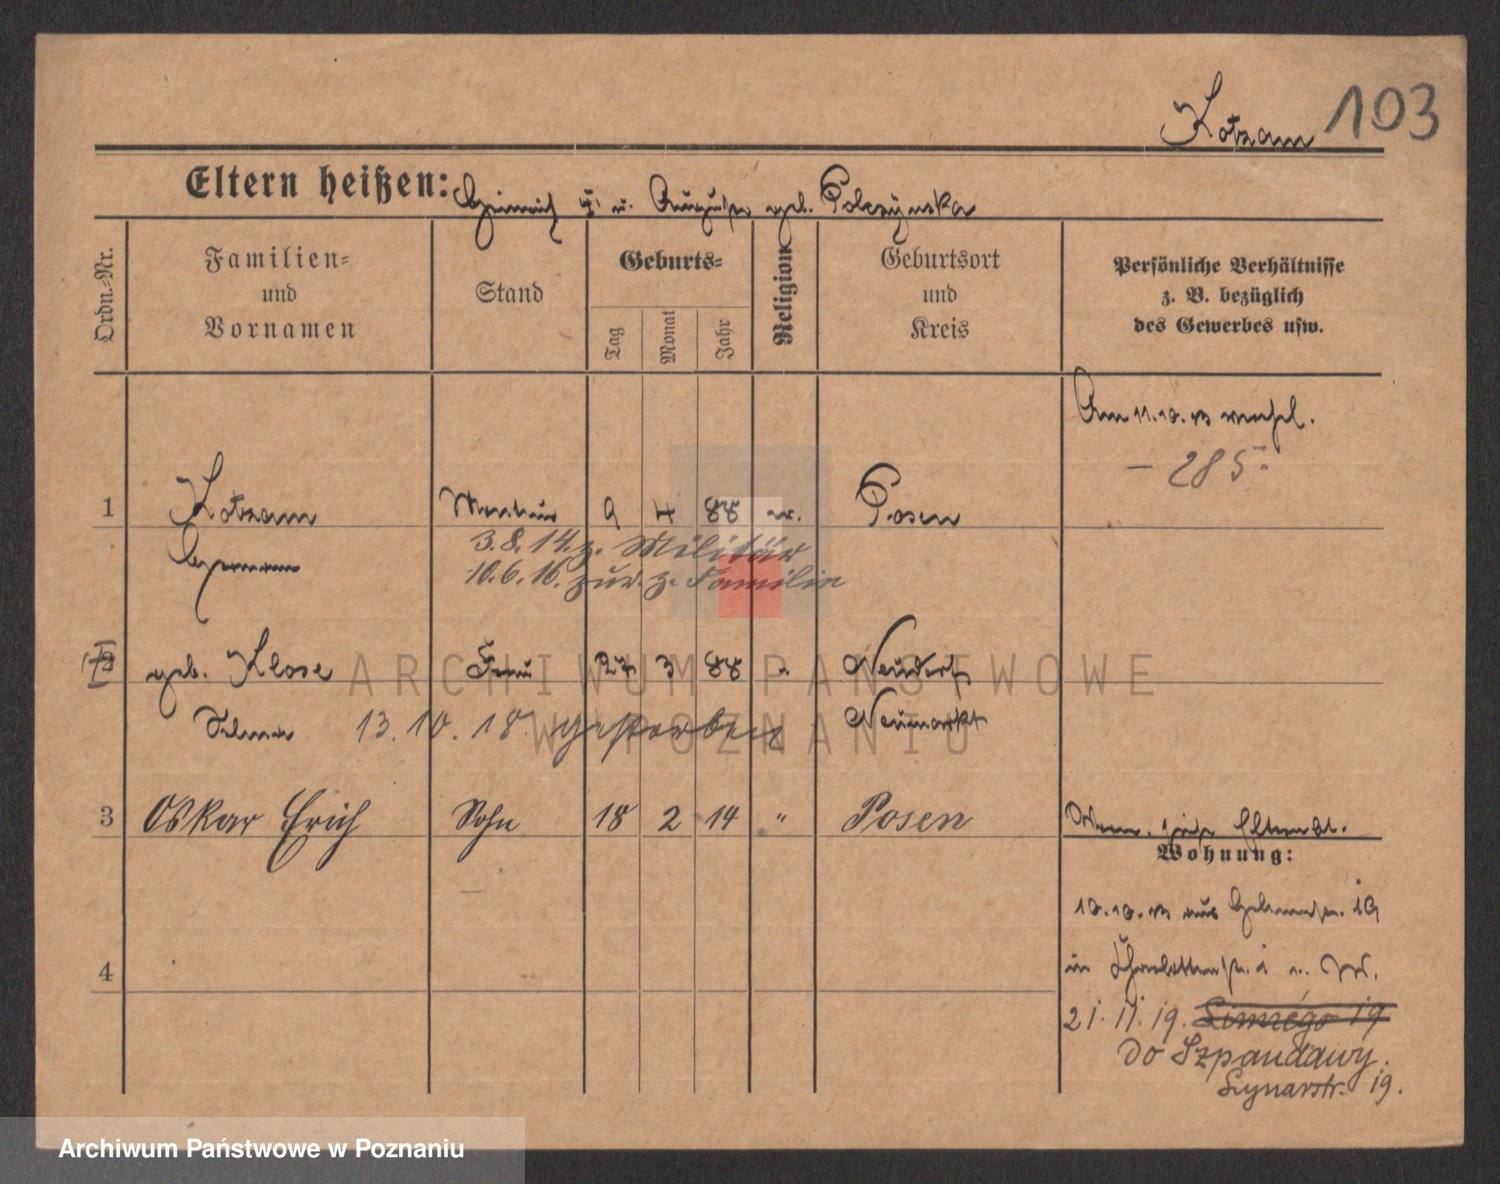 Kotzam 103
Eltern heißen: Heinrich u. Auguste geb. Polczynska
Ordn.-Nr.
Familien-
und
Vornamen
Stand
Geburts-
Tag
Monat
Jahr
Religion
Geburtsort
und
Kreis
Persönliche Verhältnisse
z. B. bezüglich
des Gewerbes usw.
Am 11.10.13
– 285.
1 Kotzam 9 4 88 ev. Posen
3.8.14. z. Militär
Hermann
10.6.16. zur. z. Familie
2 geb. Klose Frau 27 3 88 Neudorf
Selma 13.10.18. gestorben Neumarkt
3 Oskar Erich Sohn 18 2 14 " Posen
Wohnung:
10.10.13 aus 19
in
4
21.11.19. 19
do Szpandawy.
Lynarstr. 19.
ARCHIWUM PAŃSTWOWE
W POZNANIU
Archiwum Państwowe w Poznaniu